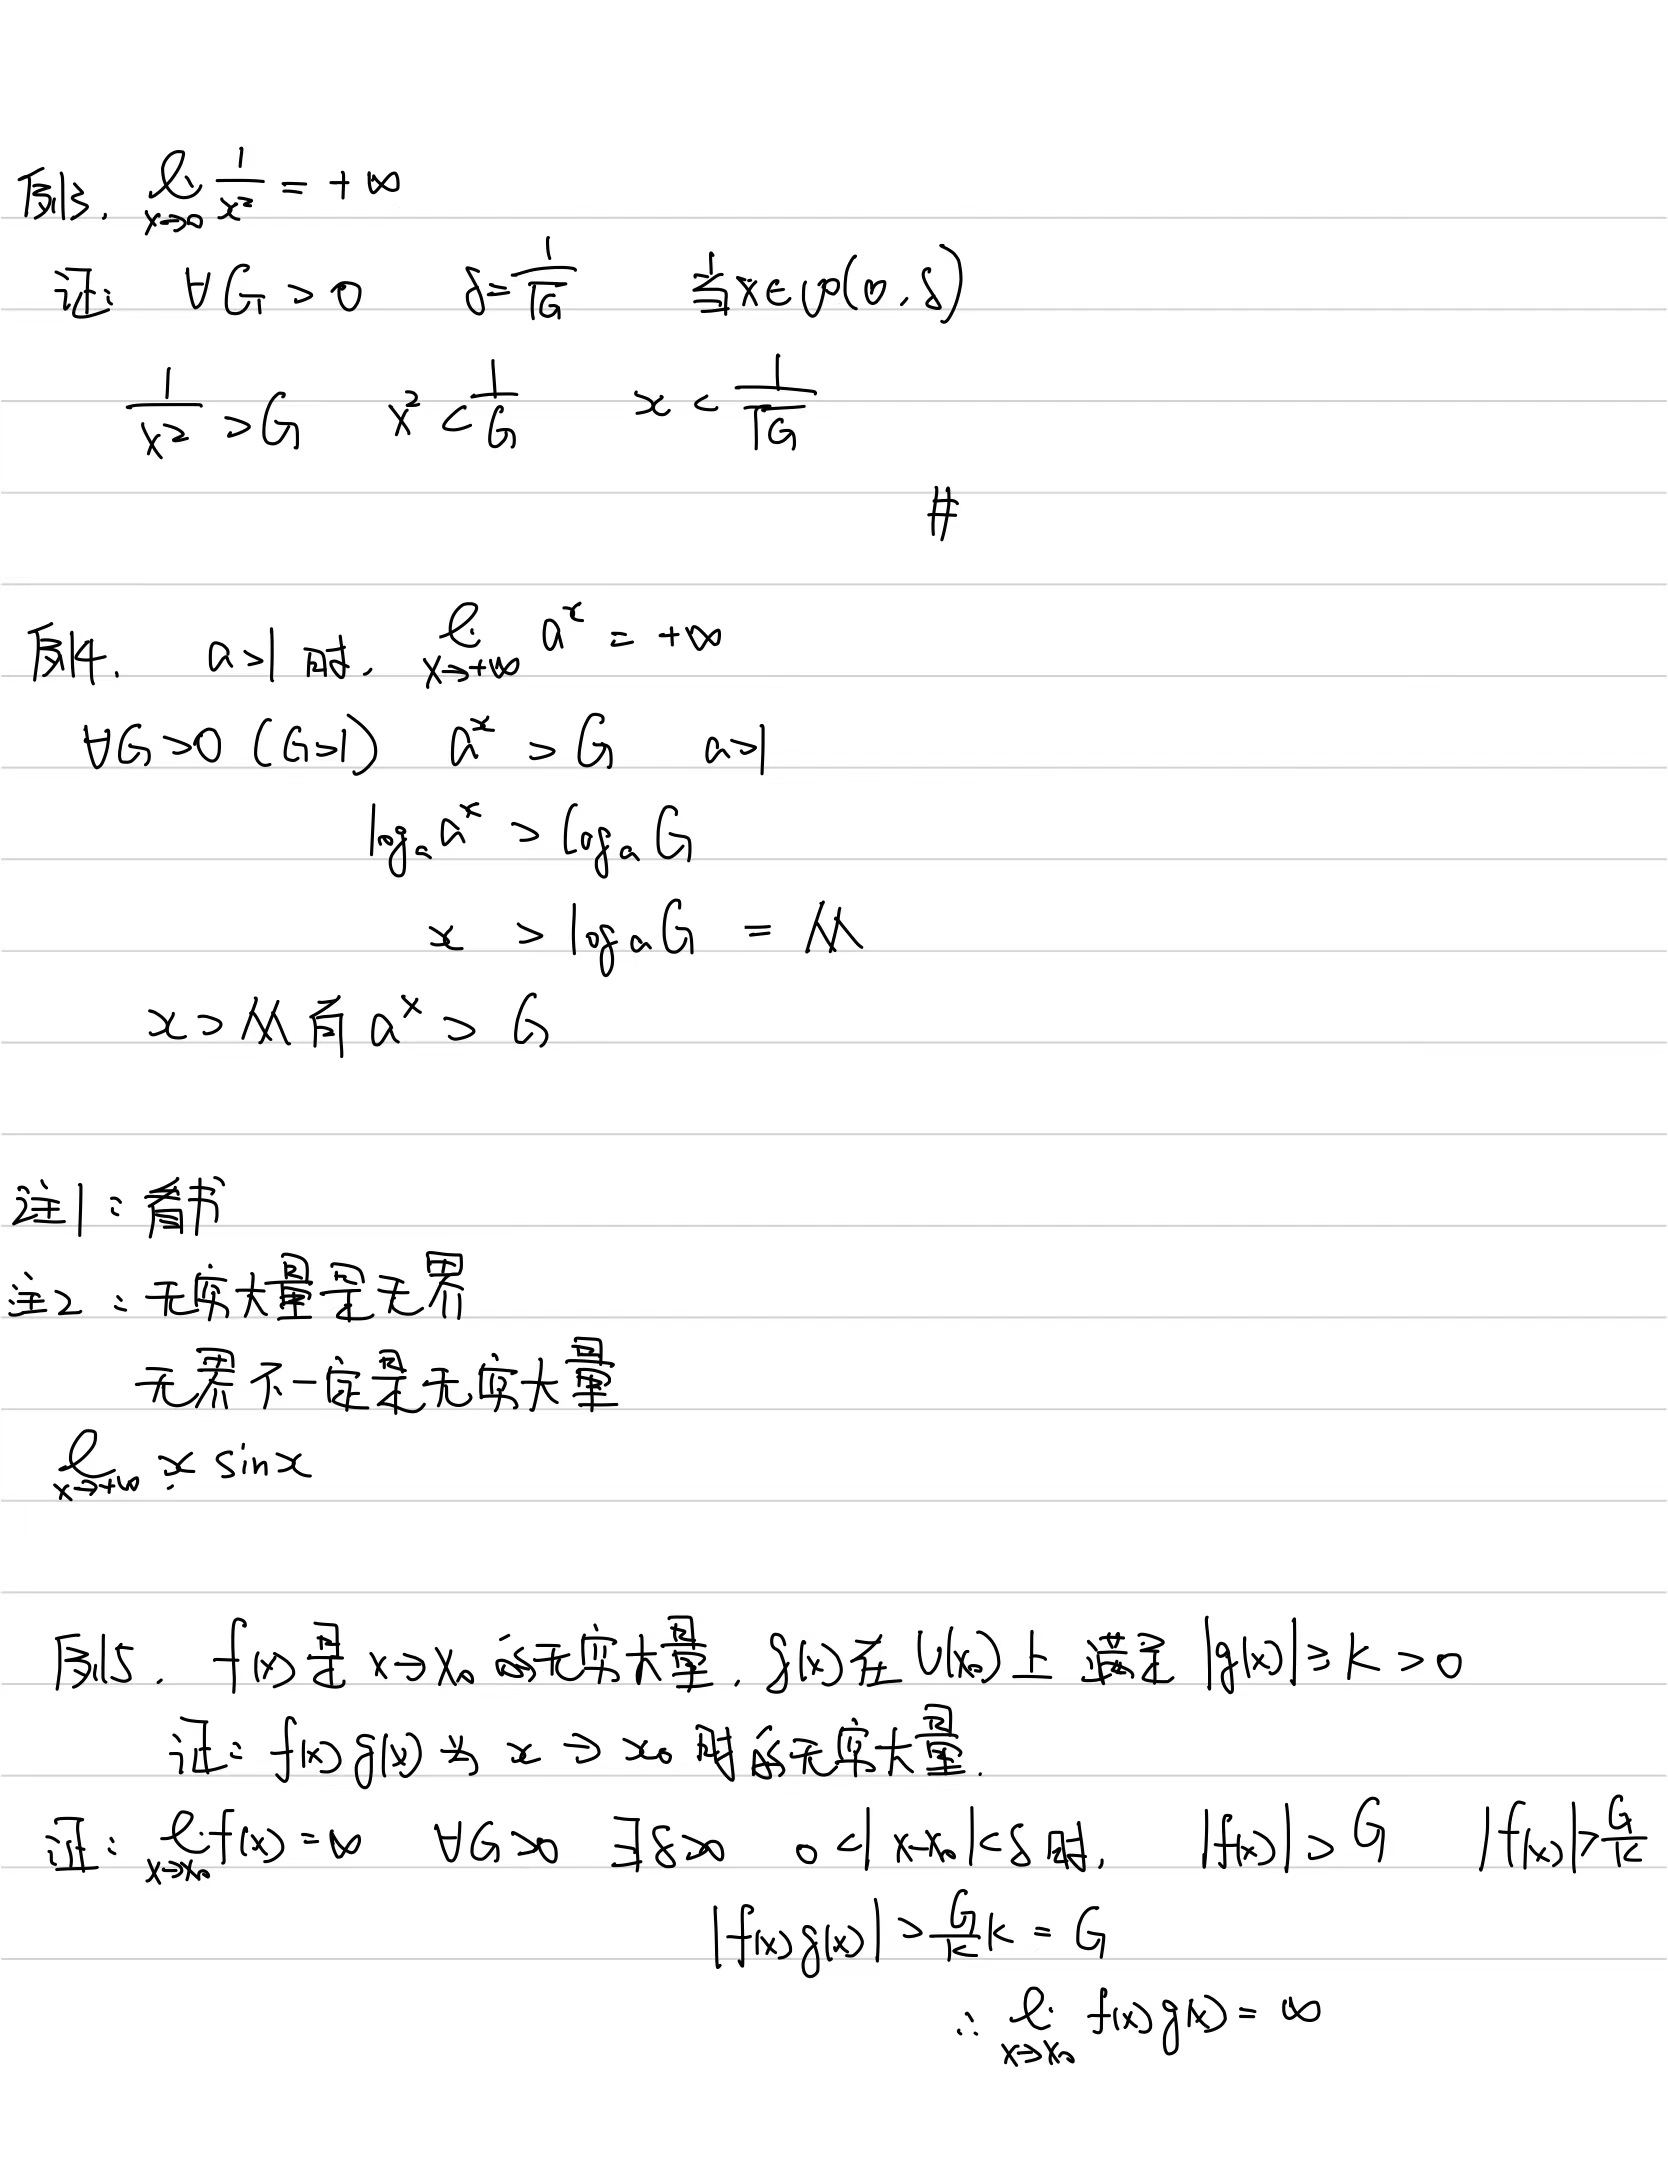 例3. lim_{x→0} 1/x² = +∞
证: ∀G>0 δ=1/√G 当x∈U°(0,δ)
1/x² > G x² < 1/G x < 1/√G
#
例4. a>1 时. lim_{x→+∞} a^x = +∞
∀G>0 (G>1) a^x > G a>1
log_a a^x > log_a G
x > log_a G = M
x>M 有 a^x > G
注1: 看书
注2: 无穷大量是无界
无界不一定是无穷大量
lim_{x→+∞} x sinx
例5. f(x)是 x→x₀ 的无穷大量. g(x)在 U(x₀)上 满足 |g(x)| ≥ K > 0
证: f(x)g(x) 当 x→x₀ 时的无穷大量.
证: lim_{x→x₀} f(x)=∞ ∀G>0 ∃δ>0 0<|x-x₀|<δ 时, |f(x)| > G |f(x)|>G/K
|f(x)g(x)| > G/K K = G
∴ lim_{x→x₀} f(x)g(x) = ∞